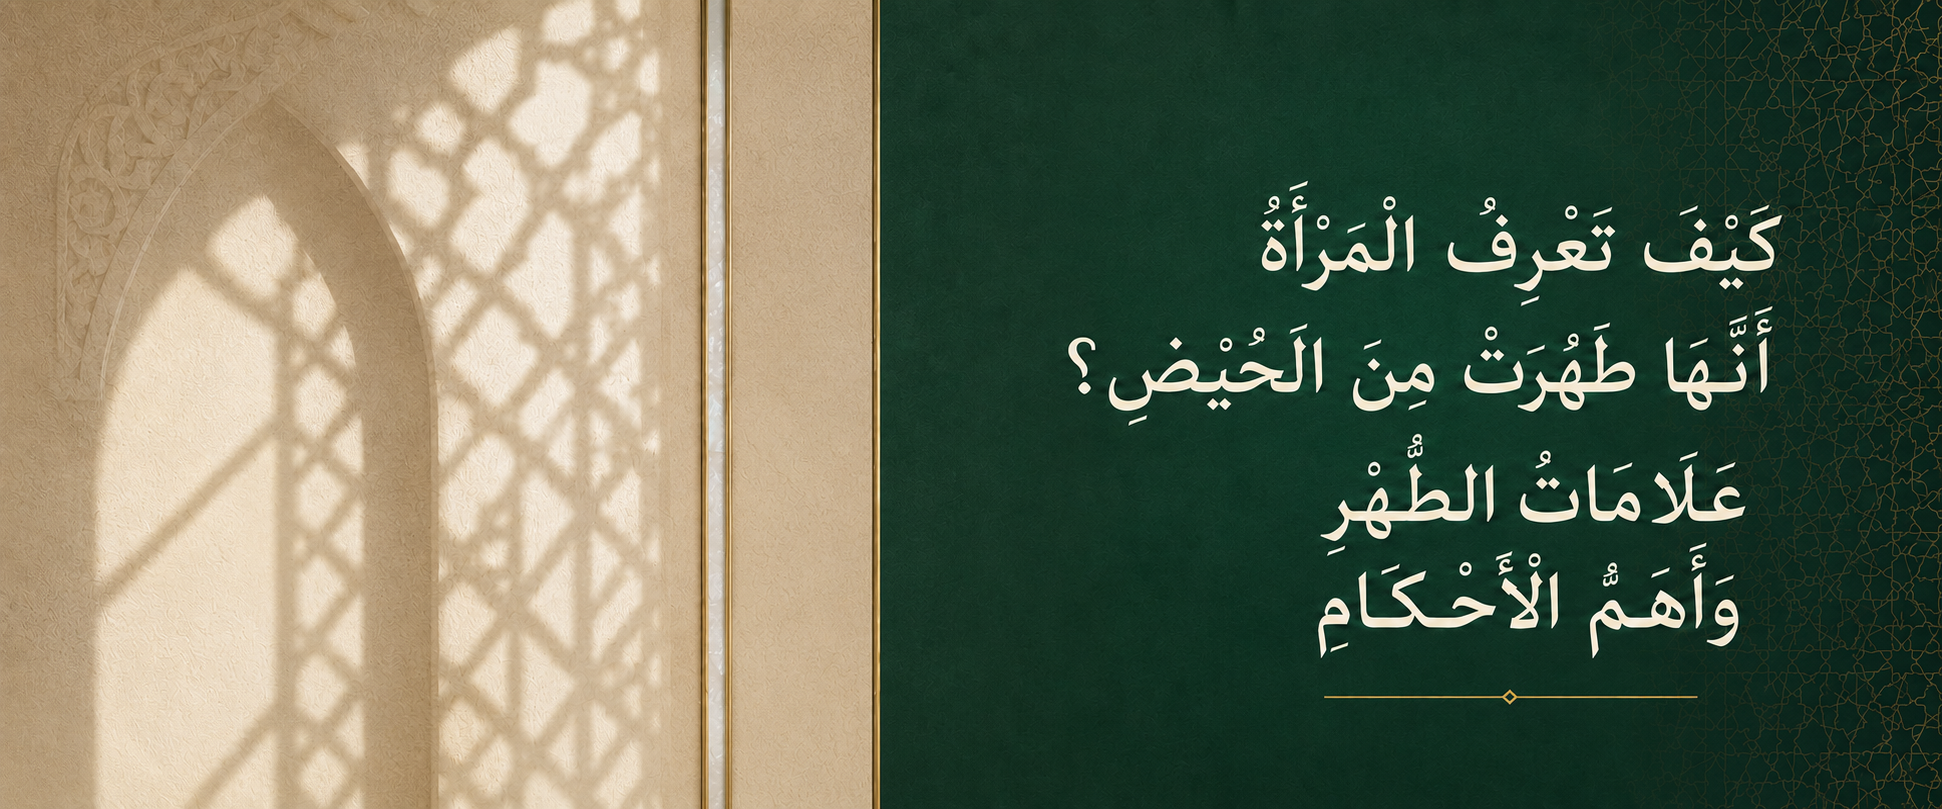 كَيْفَ تَعْرِفُ الْمَرْأَةُ
أَنَّهَا طَهُرَتْ مِنَ الَحُيْضِ؟
عَلَامَاتُ الطُّهْرِ
وَأَهَمُّ الْأَحْكَامِ